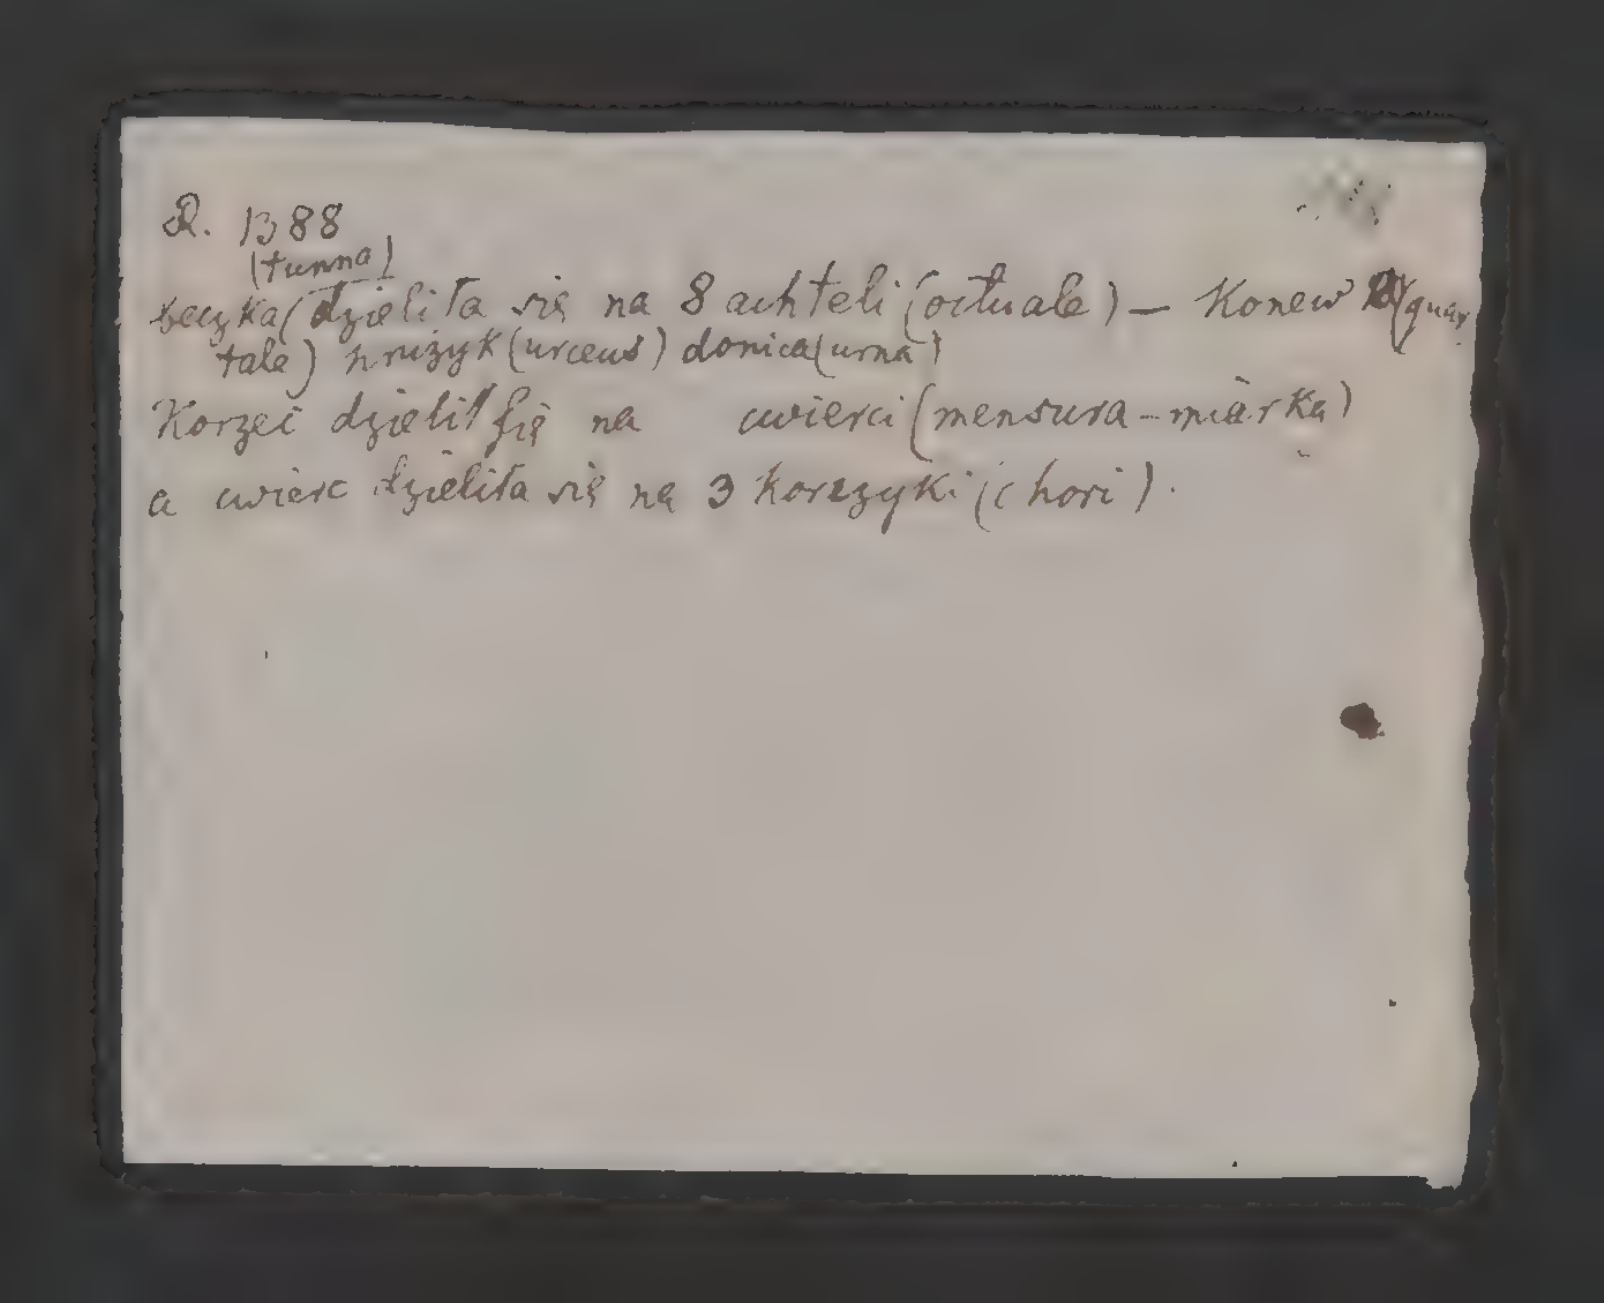 R. 1388
(tunna)
beczka (dzieliła się na 8 achteli (octuale) — Konew (quar
tale) krużyk (urceus) donica (urna)
Korzec dzielił się na cwierci (mensura - miarka)
a cwierc dzieliła się na 3 korczyki (chori).